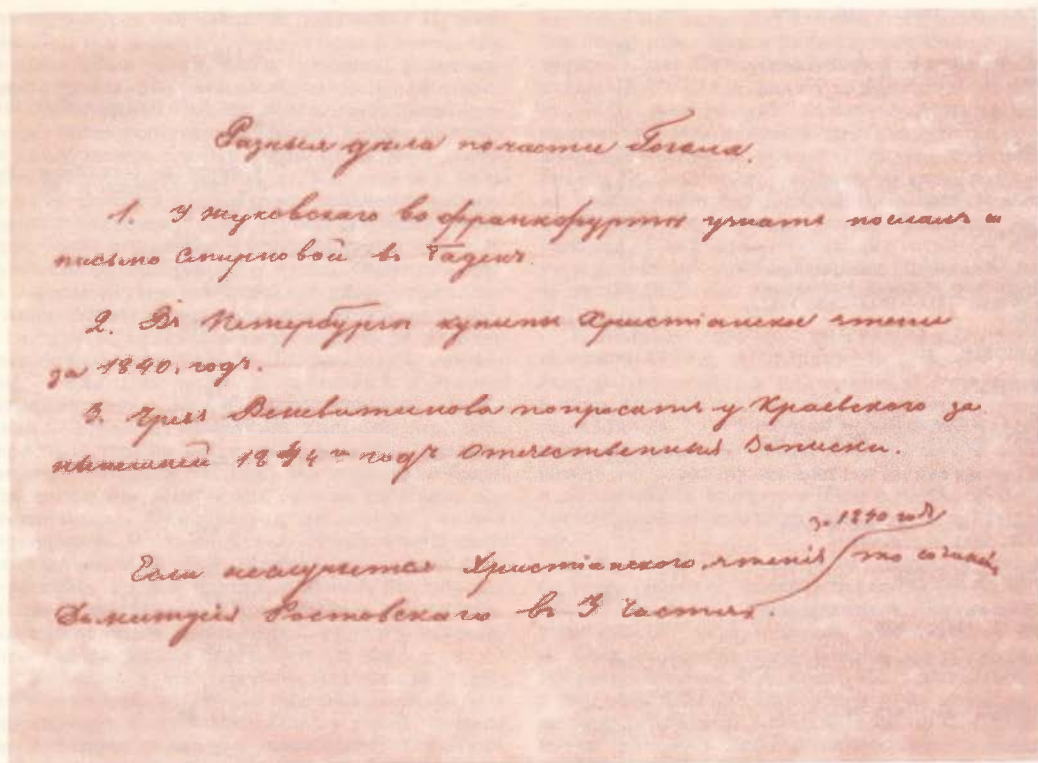 Разныя дѣла по части Гоголя.
1. У Жуковскаго во Франкфуртѣ узнать послалъ и
письмо Смирновой въ
2. Въ Петербургѣ купить Христіанское чтеніе
за 1840. годъ.
3. Чрезъ Веневитинова попросить у Краевскаго за
нынешній 1844й годъ Отечественныя Записки.
за 1840 годъ
Если неслучится Христіанского чтенія то сочиненія
Димитрія Ростовскаго въ частяхъ.